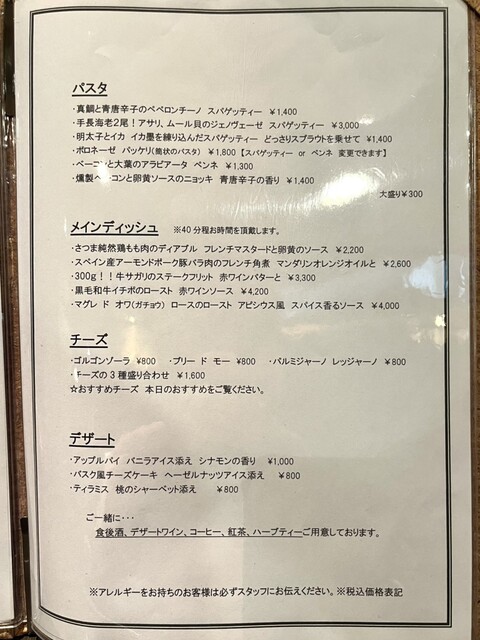 パスタ
・真鯛と青唐辛子のペペロンチーノ スパゲッティー ¥1,400
・手長海老2尾！アサリ、ムール貝のジェノヴェーゼ スパゲッティー ¥3,000
・明太子とイカ イカ墨を練り込んだスパゲッティー どっさりスプラウトを乗せて ¥1,400
・ボロネーゼ パッケリ(筒状のパスタ) ¥1,800 【スパゲッティー or ペンネ 変更できます】
・ベーコンと大葉のアラビアータ ペンネ ¥1,300
・燻製ベーコンと卵黄ソースのニョッキ 青唐辛子の香り ¥1,400
大盛り¥300
メインディッシュ ※40分程お時間を頂戴します。
・さつま純然鶏もも肉のディアブル フレンチマスタードと卵黄のソース ¥2,200
・スペイン産アーモンドポーク豚バラ肉のフレンチ角煮 マンダリンオレンジオイルと ¥2,600
・300g！！牛サガリのステークフリット 赤ワインバターと ¥3,300
・黒毛和牛イチボのロースト 赤ワインソース ¥4,200
・マグレ ド オワ(ガチョウ) ロースのロースト アピシウス風 スパイス香るソース ¥4,000
チーズ
・ゴルゴンゾーラ ¥800 ・ブリー ド モー ¥800 ・パルミジャーノ レッジャーノ ¥800
・チーズの3種盛り合わせ ¥1,600
☆おすすめチーズ 本日のおすすめをご覧ください。
デザート
・アップルパイ バニラアイス添え シナモンの香り ¥1,000
・バスク風チーズケーキ ヘーゼルナッツアイス添え ¥800
・ティラミス 桃のシャーベット添え ¥800
ご一緒に・・・
食後酒、デザートワイン、コーヒー、紅茶、ハーブティーご用意しております。
※アレルギーをお持ちのお客様は必ずスタッフにお伝えください。※税込価格表記